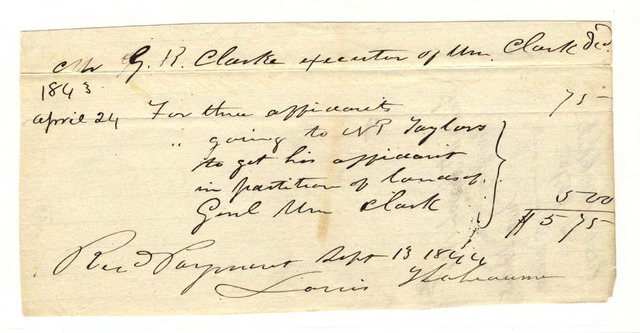 Mr G. R. Clarke executor of Wm. Clark decd.
1843
April 24 For three affidavits 75
" going to N P Taylors
to get his affidavit
in partition of lands of.
Genl Wm Clark 5 00
$ 5 75
Recd Payment Sept 13 1844
Louis T Labeaume